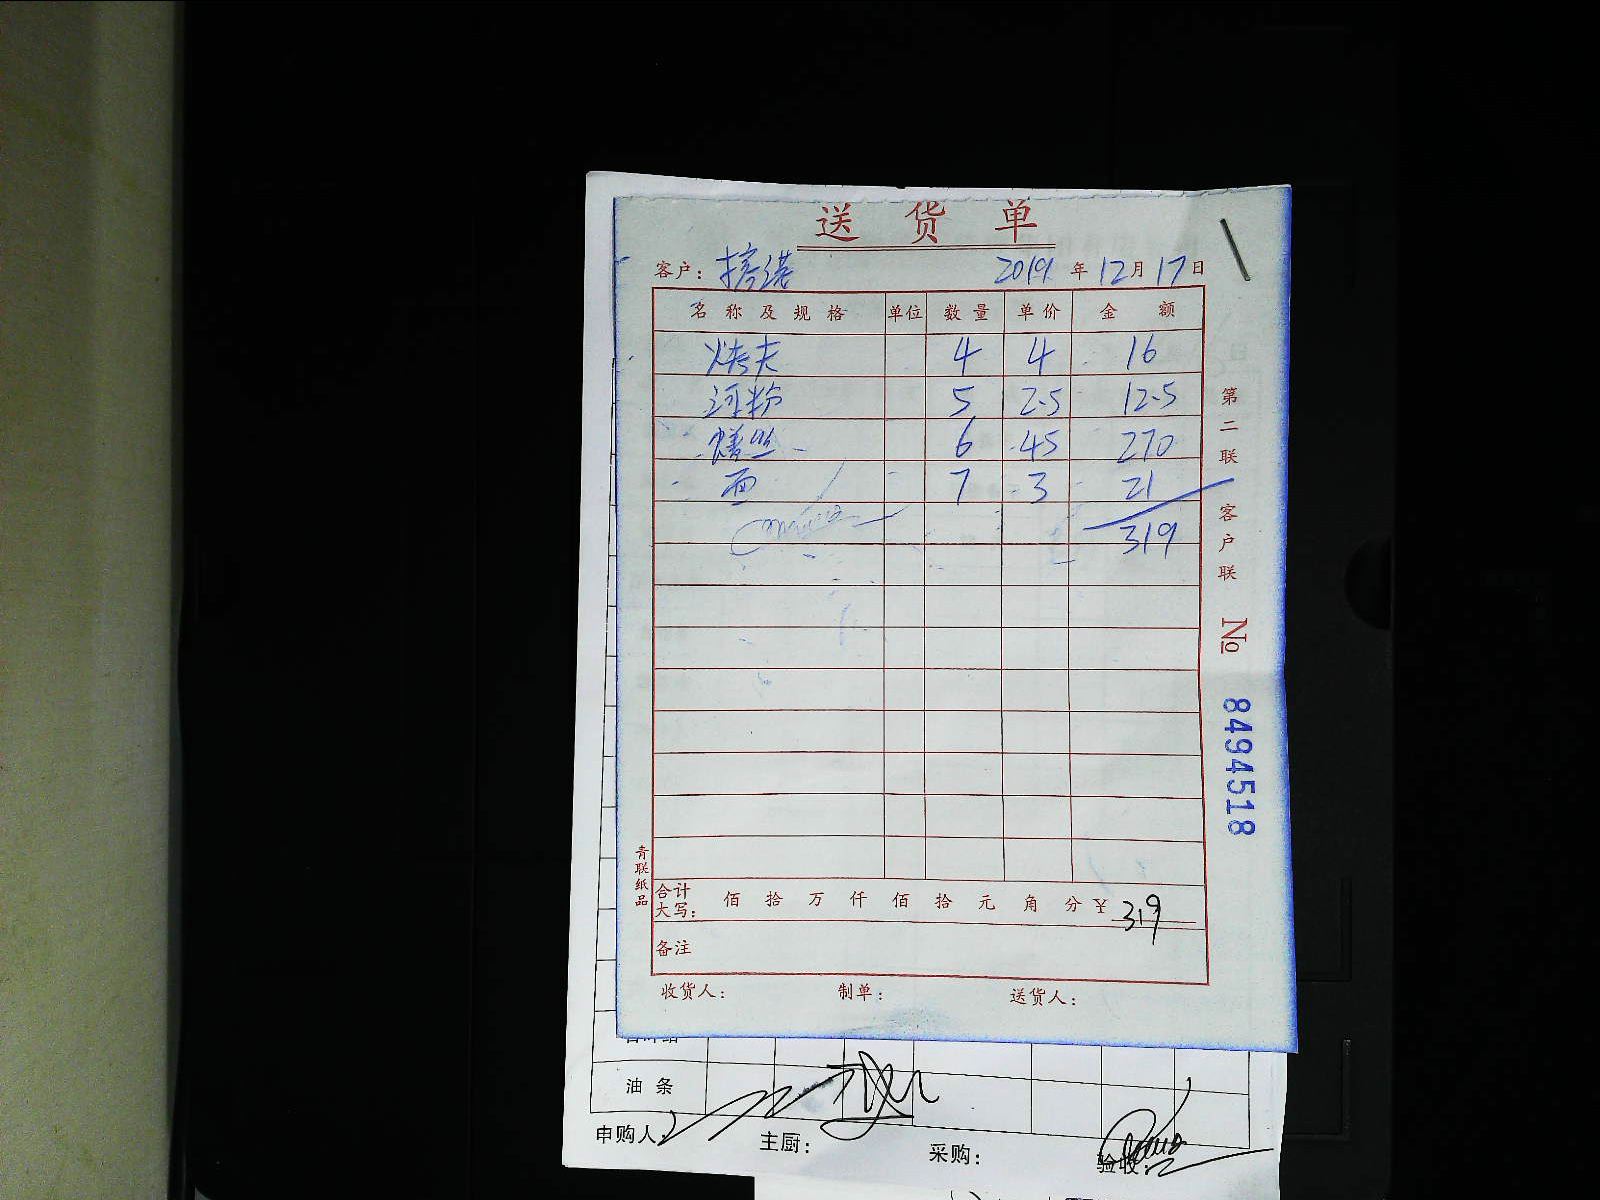 送货单
客户: 榕港 2019年12月17日
名称及规格 单位 数量 单价 金额
烤夫 4 4 16
河粉 5 2.5 12.5
丝 6 45 270
面 7 3 21
319
第二联 客户联 No 8494518
青联纸品
合计大写: 佰 拾 万 仟 佰 拾 元 角 分 ¥ 319
备注
收货人: 制单: 送货人:
油条
申购人: 主厨: 采购: 验收: